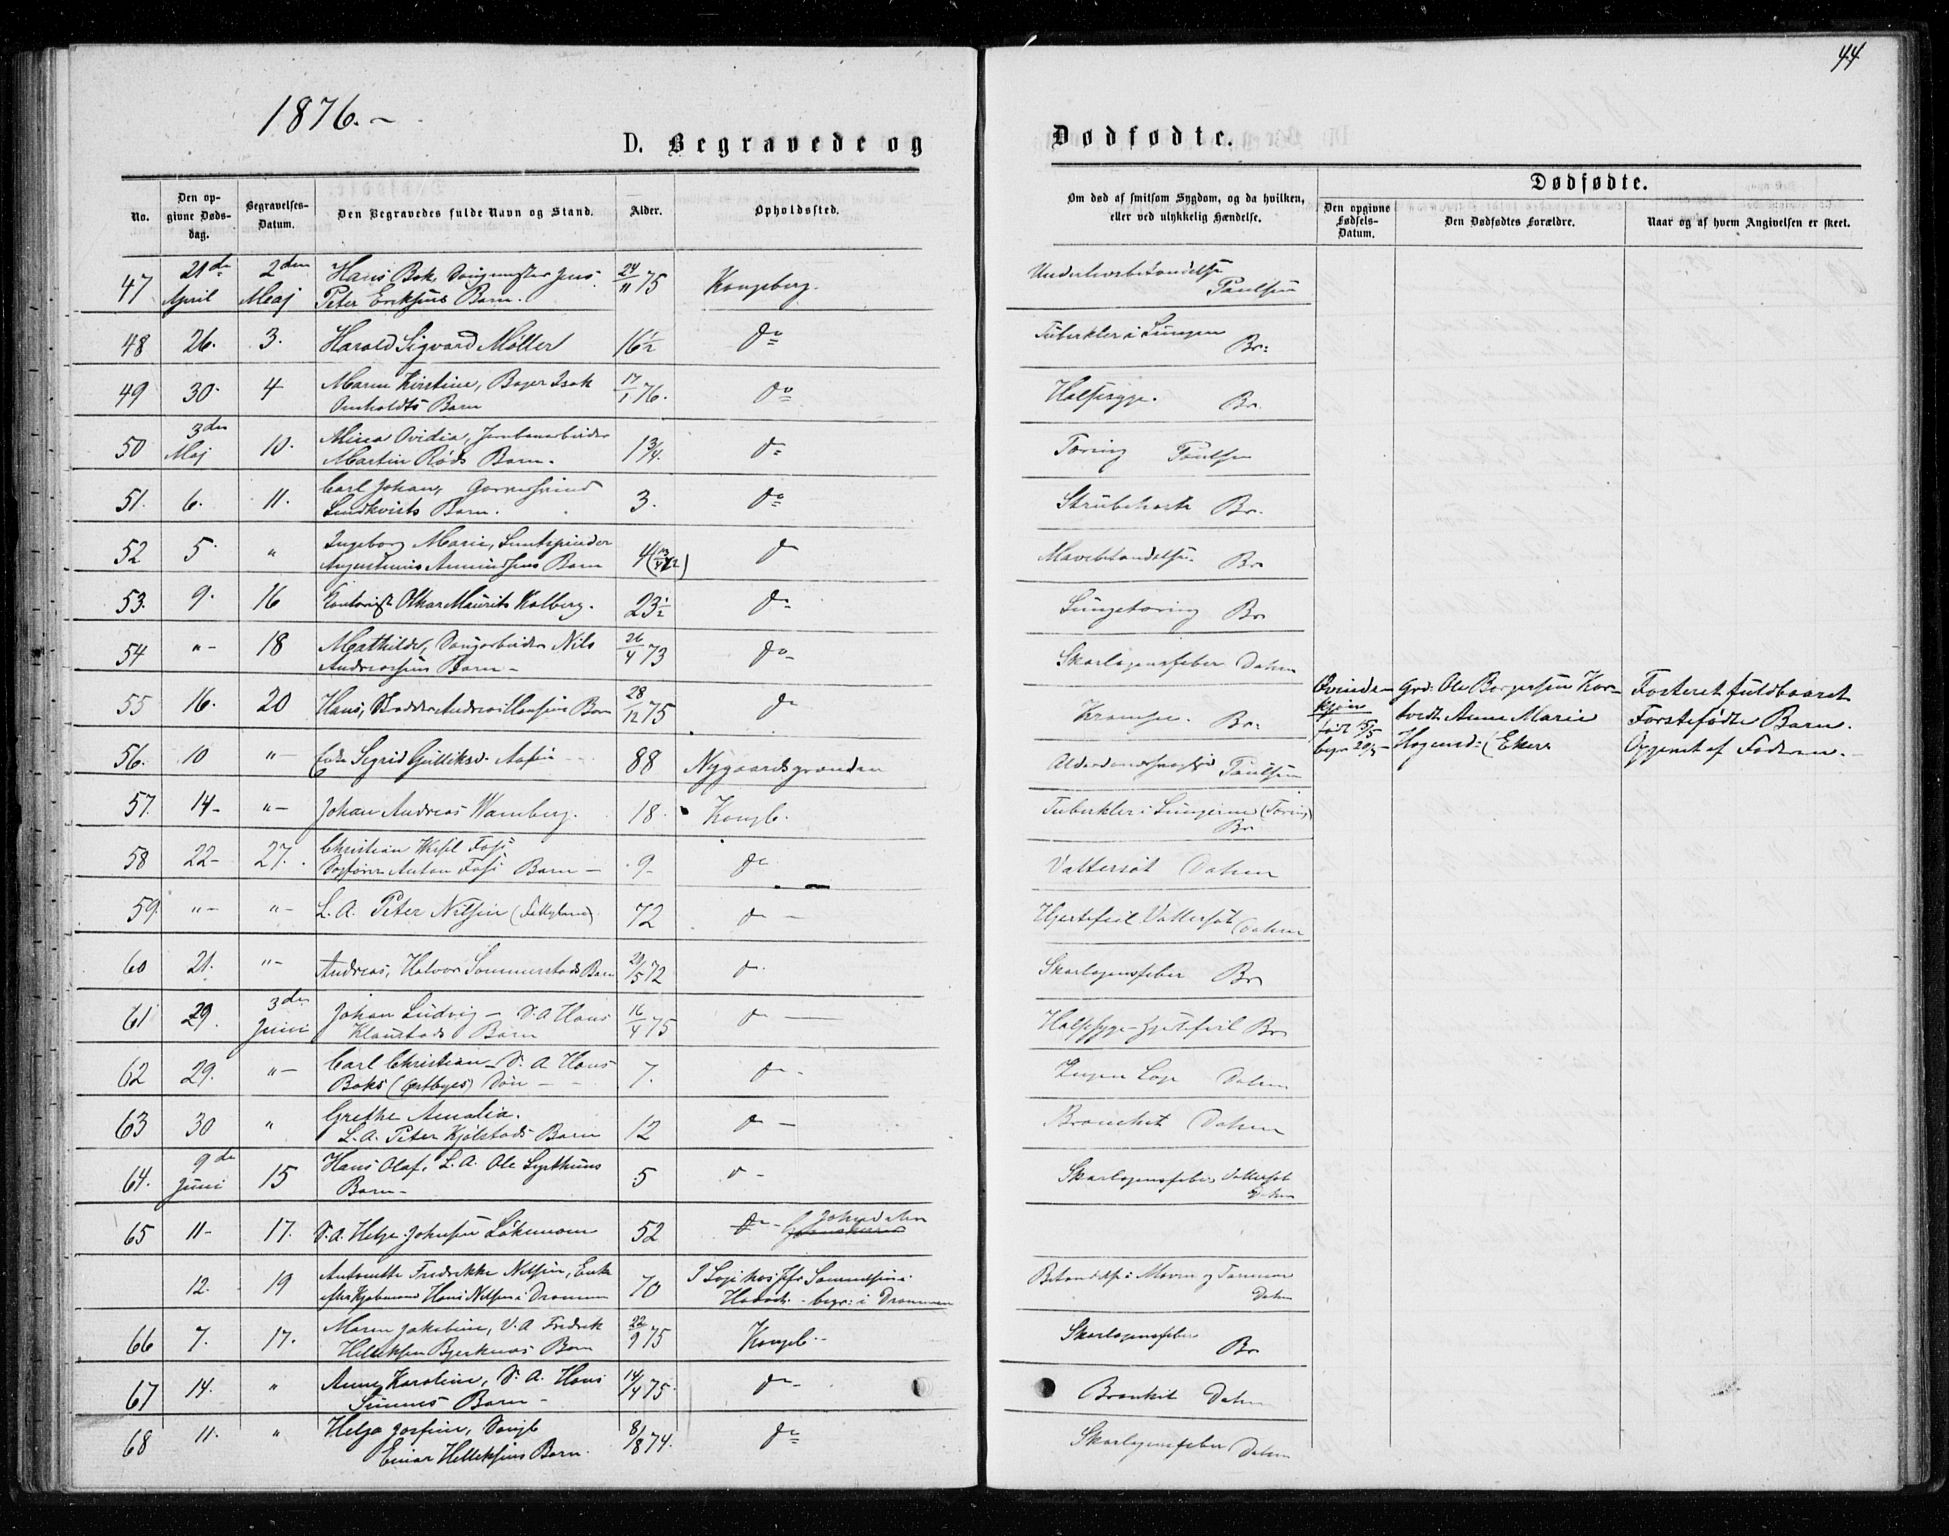 44
1876. -
D. Begravede og
Dødfødte.
No.
Den op-
givne Døds-
dag.
Begravelses-
Datum.
Den Begravedes fulde Navn og Stand.
Alder.
Opholdssted.
Om død af smitsom Sygdom, og da hvilken,
eller ved ulykkelig Hændelse.
Dødfødte.
Den opgivne
Fødsels-
Datum.
Den Dødfødtes Forældre.
Naar og af hvem Angivelsen er skeet.
47 21de April 2den Maj Hans Bok,
Peter Eriksens Barn. 24/11 75 Kongsberg. Underlivsbetændelse Paulsen
48 26. 3. Harald Sigvard Møller 16½ do Tuberkler i Lungen Br:
49 30. 4 Maren Kirstine, Bager Isak
Omholdts Barn 17/1 76. do Halssyge. Br.
50 3den Maj 10. Mina Ovidia, Jernbanearbeider
Martin Røds Barn. 1¾. do Tæring Paulsen
51. 6. 11. Carl Johan, Garversvend
Lindkvists Barn. 3. do Strubehoste Br.
52 5. " Ingeborg Marie, Luntspinder
Augustinus Amundsens Barn 4 do Mavebetændelse. Br
53. 9. 16 Kontorist Othar Maurits Kolberg. 23½ do Lungetæring Br
54 "- 18 Mathilde, Sangarbeider Nils
Andreassens Barn - 26/4 73 do Skarlagensfeber Dahm
55 16. 20 Hans, Andreas Hansens Barn 28/12 75 do Krampe. Br.
Qvinde-
kjøn
født 15/5
begr 20/5 -
Grd: Ole Borgersen Kor-
tvedt Anne Marie
Hagensd: (Eker
Fosteret fuldbaaret
Førstefødte Barn.
Opgivet af Faderen.
56. 10 " Enke Sigrid Gulliksd. Aasen 88 Nygaardsgrænden Alderdomssvaghed Paulsen
57. 14- "- Johan Andreas Wamberg. 18. Kongb. Tuberkler i Lungerne (Tæring)
Br
58 22- 27. Christian Wesel Foss
Anton Foss Barn - 9 do Vattersot Dahm
59. "- "- L. A. Peter Nilsen 72 do - Hjertefeil Vattersot Dahm
60 21. "- Andreas, Halvor Sommerstads Barn 29/5 72 do Skarlagensfeber Br
61 29. 3de Juni Johan Ludvig - S. A Hans
Klaustads Barn 16/4 75 do - Halssyge - Hjertefeil Br
62 29. "- Carl Christian - S. A Hans
Boks (Østbyes) Søn - 7. do - Ingen Læge Dahm
63 30 " Grethe Amalia.
L. A. Peter Kjølstads Barn 12 do - Bronchit Dahm
64. 9de Juni 15 Hans Olaf, L. A. Ole
Barn - 5 do - Skarlagensfeber Vattersot
Dahm
65 11- 17. S. A. Helge Johnsen 52 do - Johnsdalen
12. 19 Antonette Fredrikke Nilsen, Enke
efter Kjøbmand Hans Nilsen i Drammen 70 I Logi hos Jfr
begr: i Drammen Betændelse i Maven og Tarmene
Dahm
66 7. 17. Maren Jakobine, S. A Fredrik
Helleksen Bjerknæs Barn 22/9 75 Kongb. - Skarlagensfeber
Br
67 14. " Anne Karoline, S. A. Hans
Barn - 14/4 75. do - Bronkit Dahm
68 11. " Helga Josefine,
Einar Helleksens Barn. 8/8 74. do Skarlagensfeber Dahm